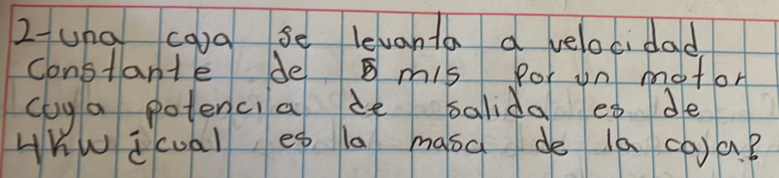 2-una caja se levanta a velocidad
constante de 5 m/s por un motor
cuya potencia de salida es de
4KW ¿cual es la masa de la caja?